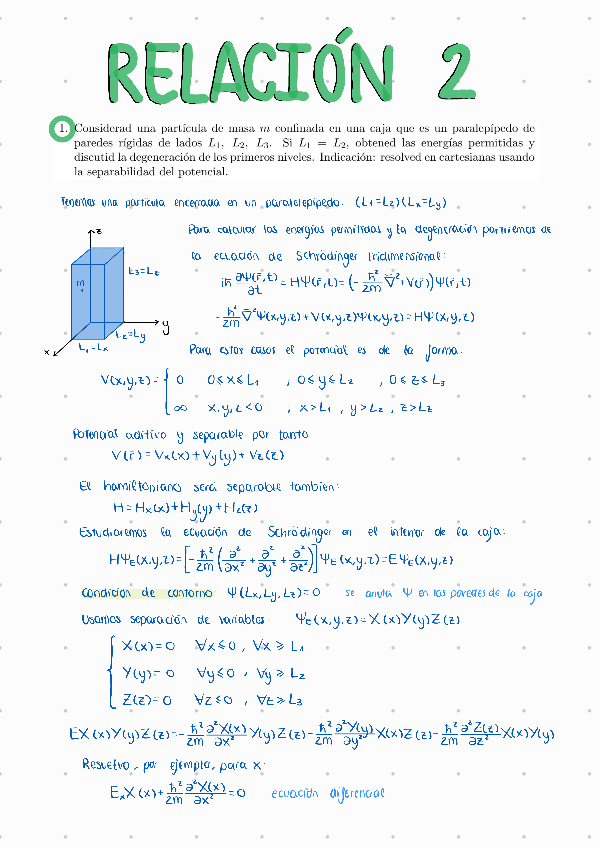 RELACIÓN 2
1. Considerad una partícula de masa m confinada en una caja que es un paralepípedo de
paredes rígidas de lados L₁, L₂, L₃. Si L₁ = L₂, obtened las energías permitidas y
discutid la degeneración de los primeros niveles. Indicación: resolved en cartesianas usando
la separabilidad del potencial.
Tenemos una partícula encerrada en un paralelepípedo. (L₁=L₂)(Lx=Ly)
Para calcular las energías permitidas y la degeneración partiremos de
la ecuación de Schrödinger tridimensional:
z
m
L₃=Lz
L₂=Ly
L₁=Lx
x
y
iħ ∂Ψ(r̄,t)/∂t = HΨ(r̄,t) = (-ħ²/2m ∇̄² + V(r̄))Ψ(r̄,t)
-ħ²/2m ∇̄²Ψ(x,y,z) + V(x,y,z)Ψ(x,y,z) = HΨ(x,y,z)
Para estos casos el potencial es de la forma:
V(x,y,z) = { 0 0≤x≤L₁ , 0≤y≤L₂ , 0≤z≤L₃
∞ x,y,z<0 , x>L₁ , y>L₂ , z>Lz
Potencial aditivo y separable por tanto
V(r̄) = Vx(x) + Vy(y) + Vz(z)
El hamiltoniano será separable también:
H = Hx(x) + Hy(y) + Hz(z)
Estudiaremos la ecuación de Schrödinger en el interior de la caja:
HΨE(x,y,z) = [-ħ²/2m (∂²/∂x² + ∂²/∂y² + ∂²/∂z²)] ΨE(x,y,z) = EΨE(x,y,z)
Condición de contorno Ψ(Lx,Ly,Lz)=0 se anula Ψ en las paredes de la caja
Usamos separación de variables: ΨE(x,y,z) = X(x)Y(y)Z(z)
X(x)=0 ∀x≤0 , ∀x≥L₁
Y(y)=0 ∀y≤0 , ∀y≥L₂
Z(z)=0 ∀z≤0 , ∀z≥L₃
EX(x)Y(y)Z(z) = -ħ²/2m ∂²X(x)/∂x² Y(y)Z(z) - ħ²/2m ∂²Y(y)/∂y² X(x)Z(z) - ħ²/2m ∂²Z(z)/∂z² X(x)Y(y)
Resuelvo, por ejemplo, para x:
ExX(x) + ħ²/2m ∂²X(x)/∂x² = 0 ecuación diferencial